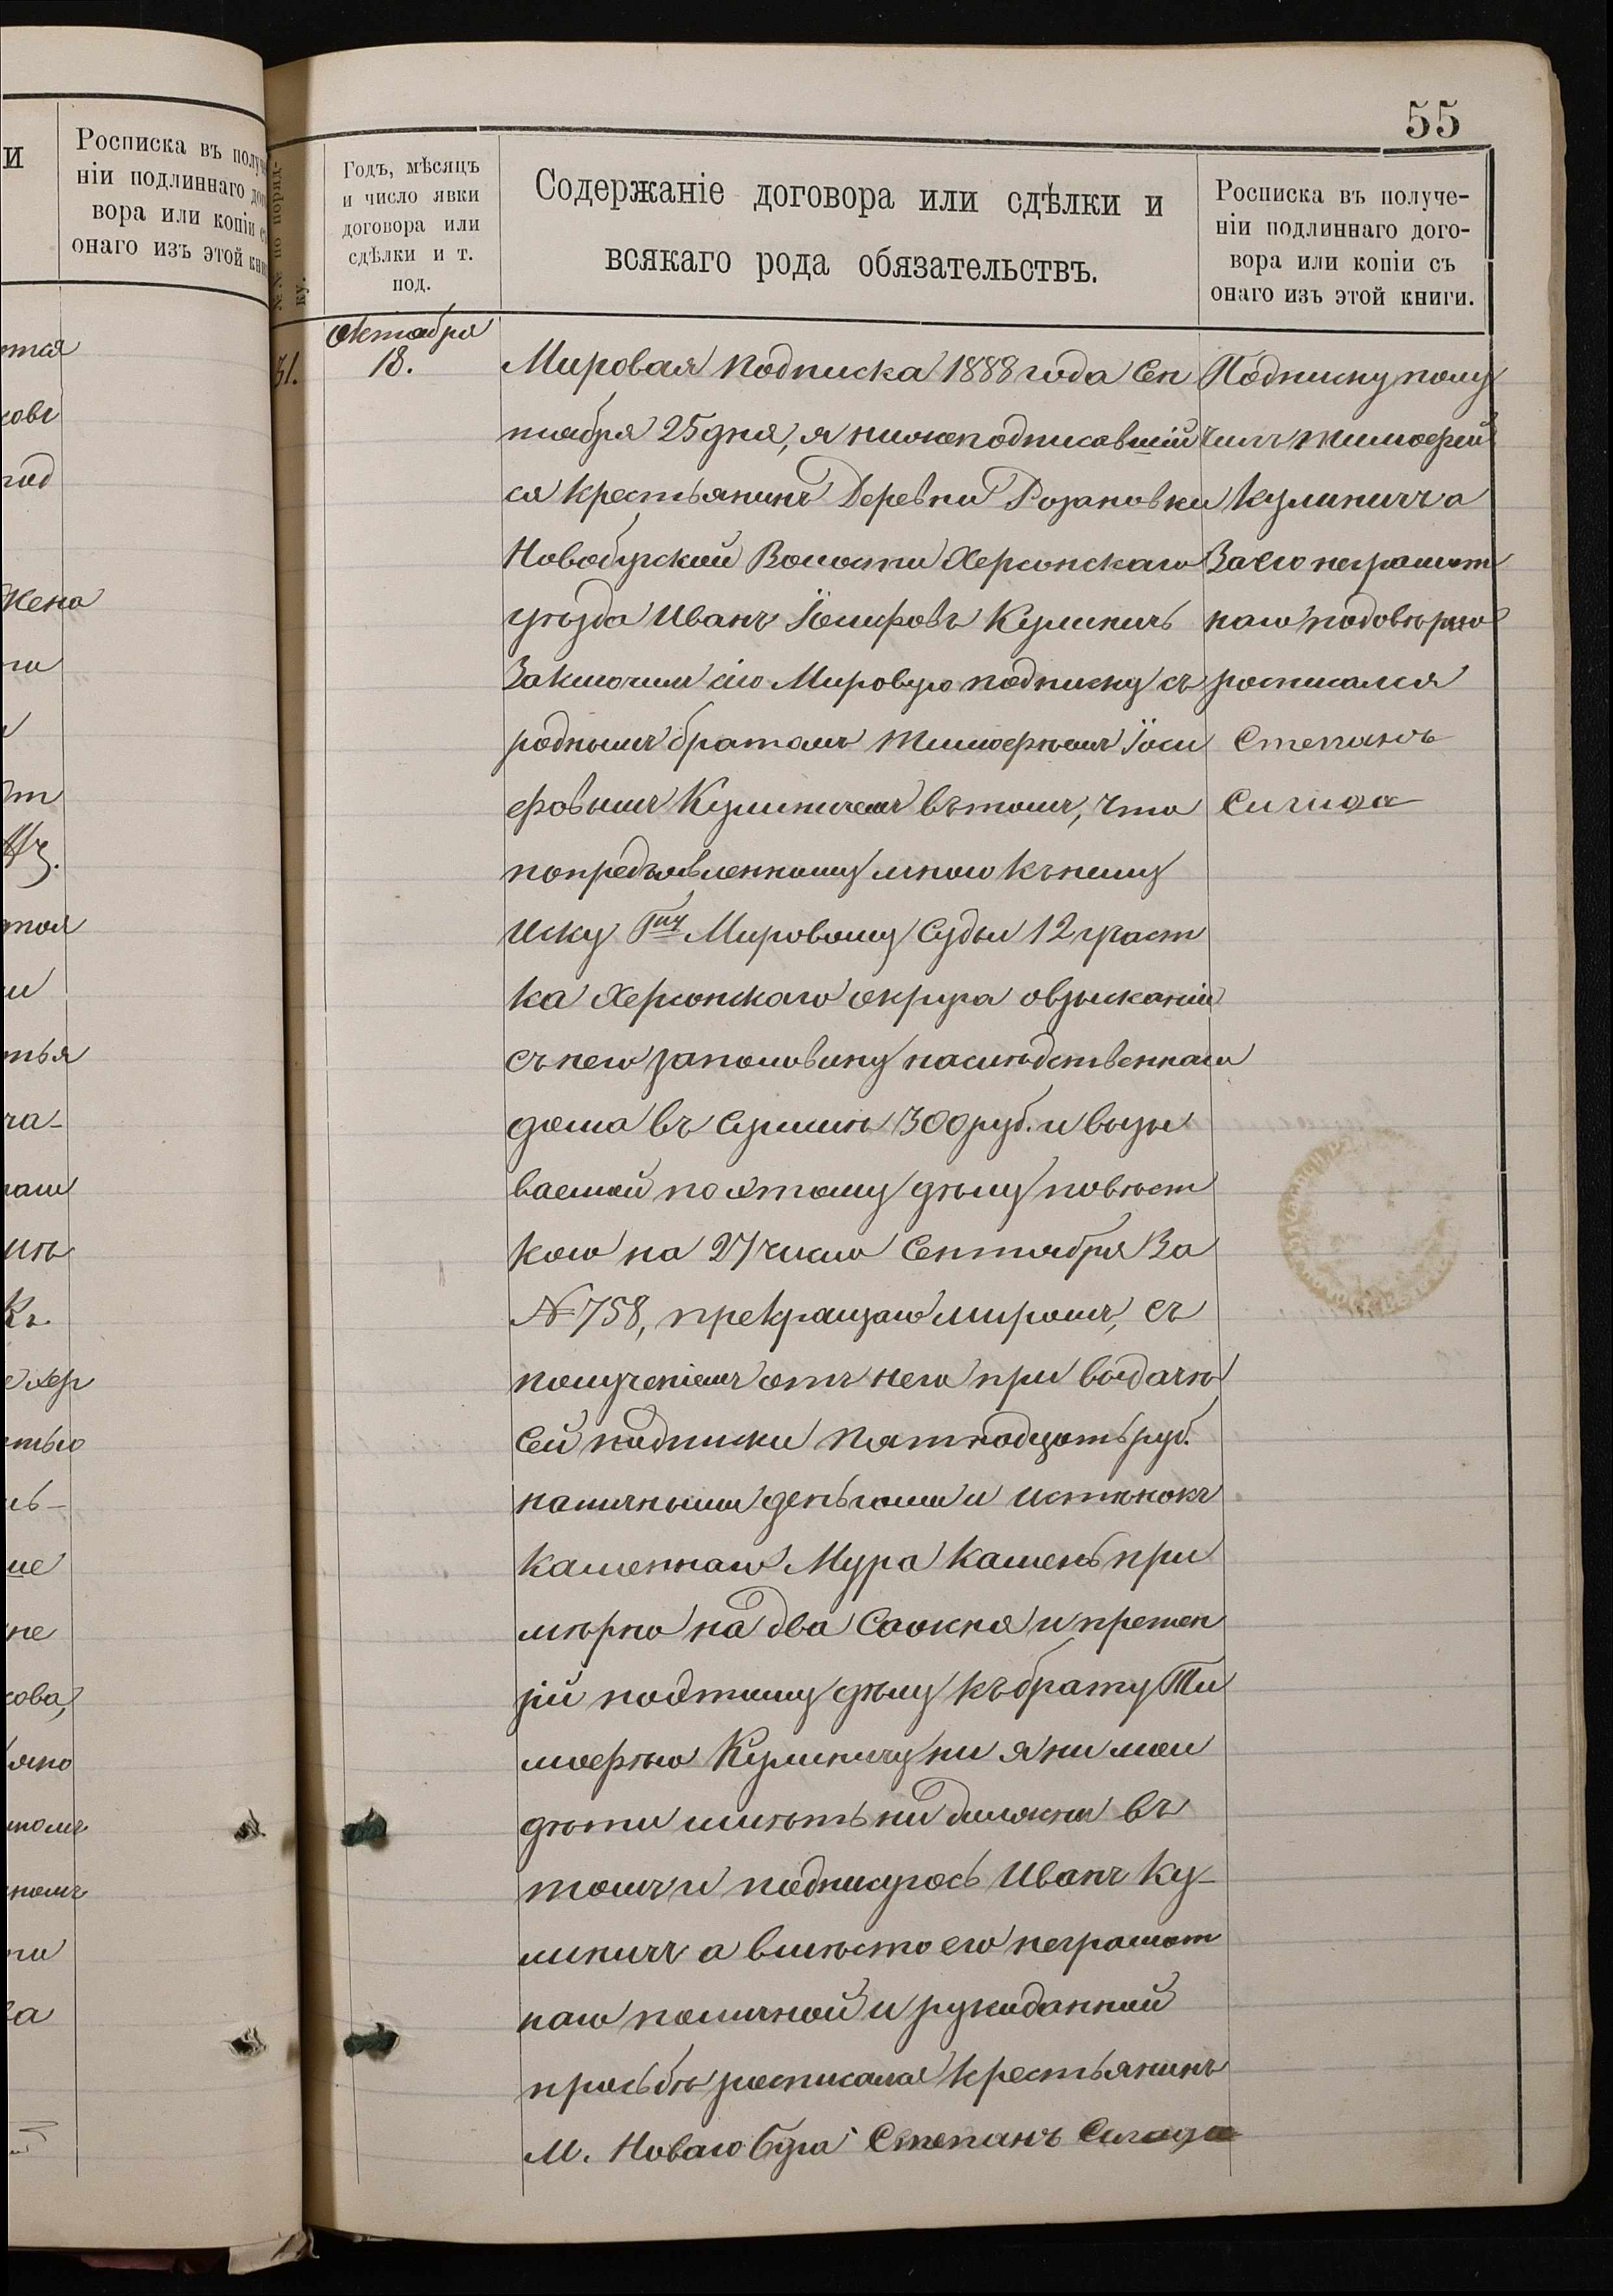 55
и
Росписка въ получе-
ніи подлиннаго дого-
вора или копіи съ
онаго изъ этой книги
№№ по поряд-
ку.
Годъ, мѣсяцъ
и число явки
договора или
сдѣлки и т.
под.
Содержаніе договора или сдѣлки и
всякаго рода обязательствъ.
Росписка въ получе-
ніи подлиннаго дого-
вора или копіи съ
онаго изъ этой книги.
31.
Октября
18.
Мировая подписка 1888 года Сен
тября 25 дня, я нижеподписавшій
ся крестьянинъ Деревни Розановки
Новобугской Волости Херсонскаго
уѣзда Иванъ Іосифовъ Кулиничъ
Заключилъ сію Мировую подписку съ
роднымъ братомъ Тимофѣемъ Іоси
фовымъ Кулиничемъ вътомъ, что
попредъявленному мною къ нему
иску Гну Мировому Судьи 12 участ
ка Херсонскаго округа овзысканіи
съ него заполовину наслѣдственнаго
дома въ Суммѣ 300 руб. и вызы
ваемой по этому дѣлу повѣст
кою на 27 число Сентября За
№ 758, прекращаю миромъ, съ
полученіемъ отъ него при выдачѣ
Сей подписки пятнадцать руб.
наличными деньгами и истѣнокъ
каменнаго Мура камень при
мѣрно на два Сажня и претен
зій поэтому дѣлу къ брату Ти
мофѣю Кулиничу ни я ни мои
дѣти имѣть ни должны въ
томъ и подпишусь Иванъ Ку-
линичъ а вмѣсто его неграмот
наго поличной и рукоданной
прозьбѣ росписался крестьянинъ
М. Новаго Буга Степанъ Сигида
Подписку полу
чилъ Тимофей
Кулиничъ а
За его неграмот
наго подовѣрію
росписался
Степанъ
Сигида